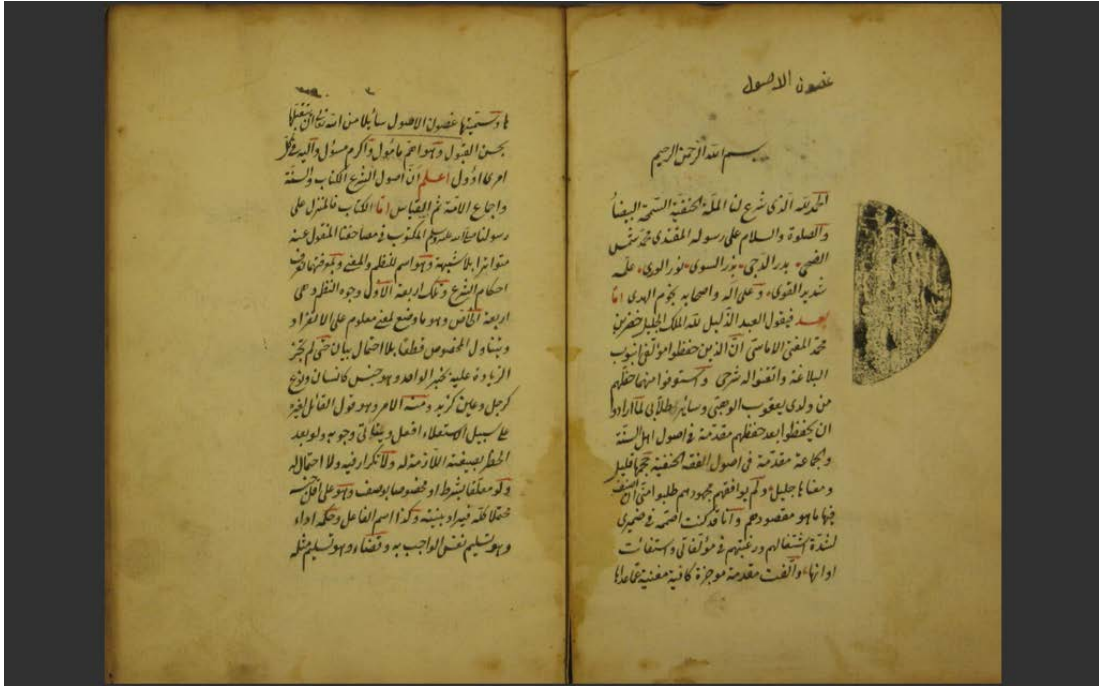 غصون الاصول
بسم الله الرحمن الرحيم
الحمد لله الذى شرع لنا الملة الحنفية السمحة البيضا
والصلوة والسلام على رسوله المقتدى محمد شمس
الضحى بدر الدجى نور الورى علمه
شديد القوى وعلى اله واصحابه نجوم الهدى اما
بعد فيقول العبد الذليل لله الملك الجليل خضر بن
محمد المفتى الاماسى ان الذين حفظوا مؤلفى انبوب
البلاغة واتقنوا له شرحى واستوفوا منهما حظهم
من ولدى يعقوب وساير طلابى لما ارادوا
ان يحفظوا بعد حفظهم مقدمة فى اصول اهل السنة
والجماعة مقدمة فى اصول الفقه الحنفية حجمها قليل
ومعناها جليل ولم يوافقهم مجهودهم طلبوا منى ان اصنف
فيها ما هو مقصودهم وانا قد كنت اضمه فى ضميرى
لشدة اشتغالهم ورغبتهم فى مؤلفاتى واستفات
اوانها والفت مقدمة موجزة كافية مغنية عما عداها
ها وسميتها غصون الاصول سائلا من الله تعالى ان يتقبلها
بحسن القبول وهو اعم مامول واكرم مسؤل واليه فى كل
امرى اؤول اعلم ان اصول الشرع الكتاب والسنة
واجماع الامة ثم القياس اما الكتاب فالمنزل على
رسولنا صلى الله عليه وسلم المكتوب فى مصاحفنا المنقول عنه
متواترا بلا شبهة وهو اسم للنظم والمعنى وبمعرفتهما تعرف
احكام الشرع وتلك اربعة الاول وجوه النظم وهى
اربعة الخاص وهو ما وضع لمعنى معلوم على الانفراد
ويتناول المخصوص قطعا بلا احتمال بيان حتى لم يجز
الزيادة عليه بخبر الواحد وهو جنس كانسان ونوع
كرجل وعين كزيد ومنه الامر وهو قول القائل لغيره
على سبيل الاستعلاء افعل ويقتضى وجوبه ولو بعد
الحظر بصيغته اللازمة له ولا تكرار فيه ولا احتمال له
ولو معلقا بشرط او مخصوصا بوصف وهو على اقل جنسه
محتملا كله فيراد بنيته وكذا اسم الفاعل وحكمه اداء
وهو تسليم نفس الواجب به وقضاء وهو تسليم مثله